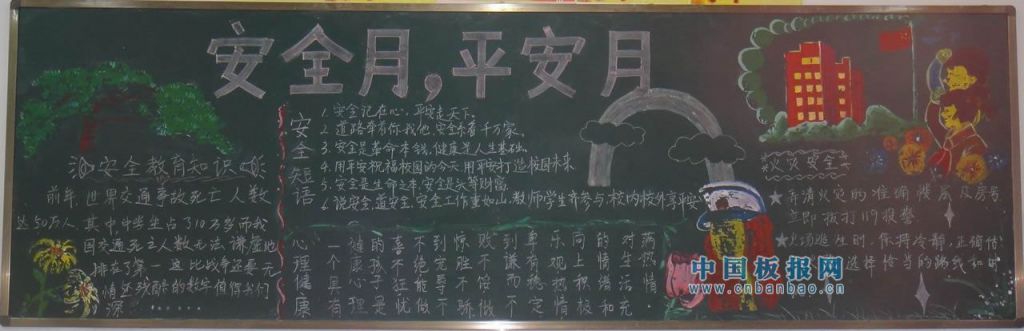 安全月，平安月
安全教育知识
前年，世界交通事故死亡人数
达50万人，其中中学生占了10万多而我
国交通死亡人数无法谦虚地
排在了第一，这比战争还要无
情还残酷的数字值得我们
深……
安全短语
1.安全记在心，平安走天下。
2.道路牵着你我他，安全系着千万家。
3.安全是革命本钱，健康是人生基础。
4.用平安祝福校园的今天，用平安打造校园未来
5.安全是生命之本，安全是头等财富
6.说安全，道安全，安全工作重如山，教师学生齐参与，校内校外享平安
心理健康
一个具有
健康心理
的孩子是
喜不狂忧
不绝能做
到宠辱不
惊胜不骄
败不馁做
到谦而不
卑有稳定
乐观的情
向上积极
的情绪和
对生活充
满热情
火灾安全
★弄清火灾的准确楼层及房号
立即拨打119报警
★火场逃生时，保持冷静，正确估
选择恰当的路线和时
中国板报网
www.cnbanbao.cn